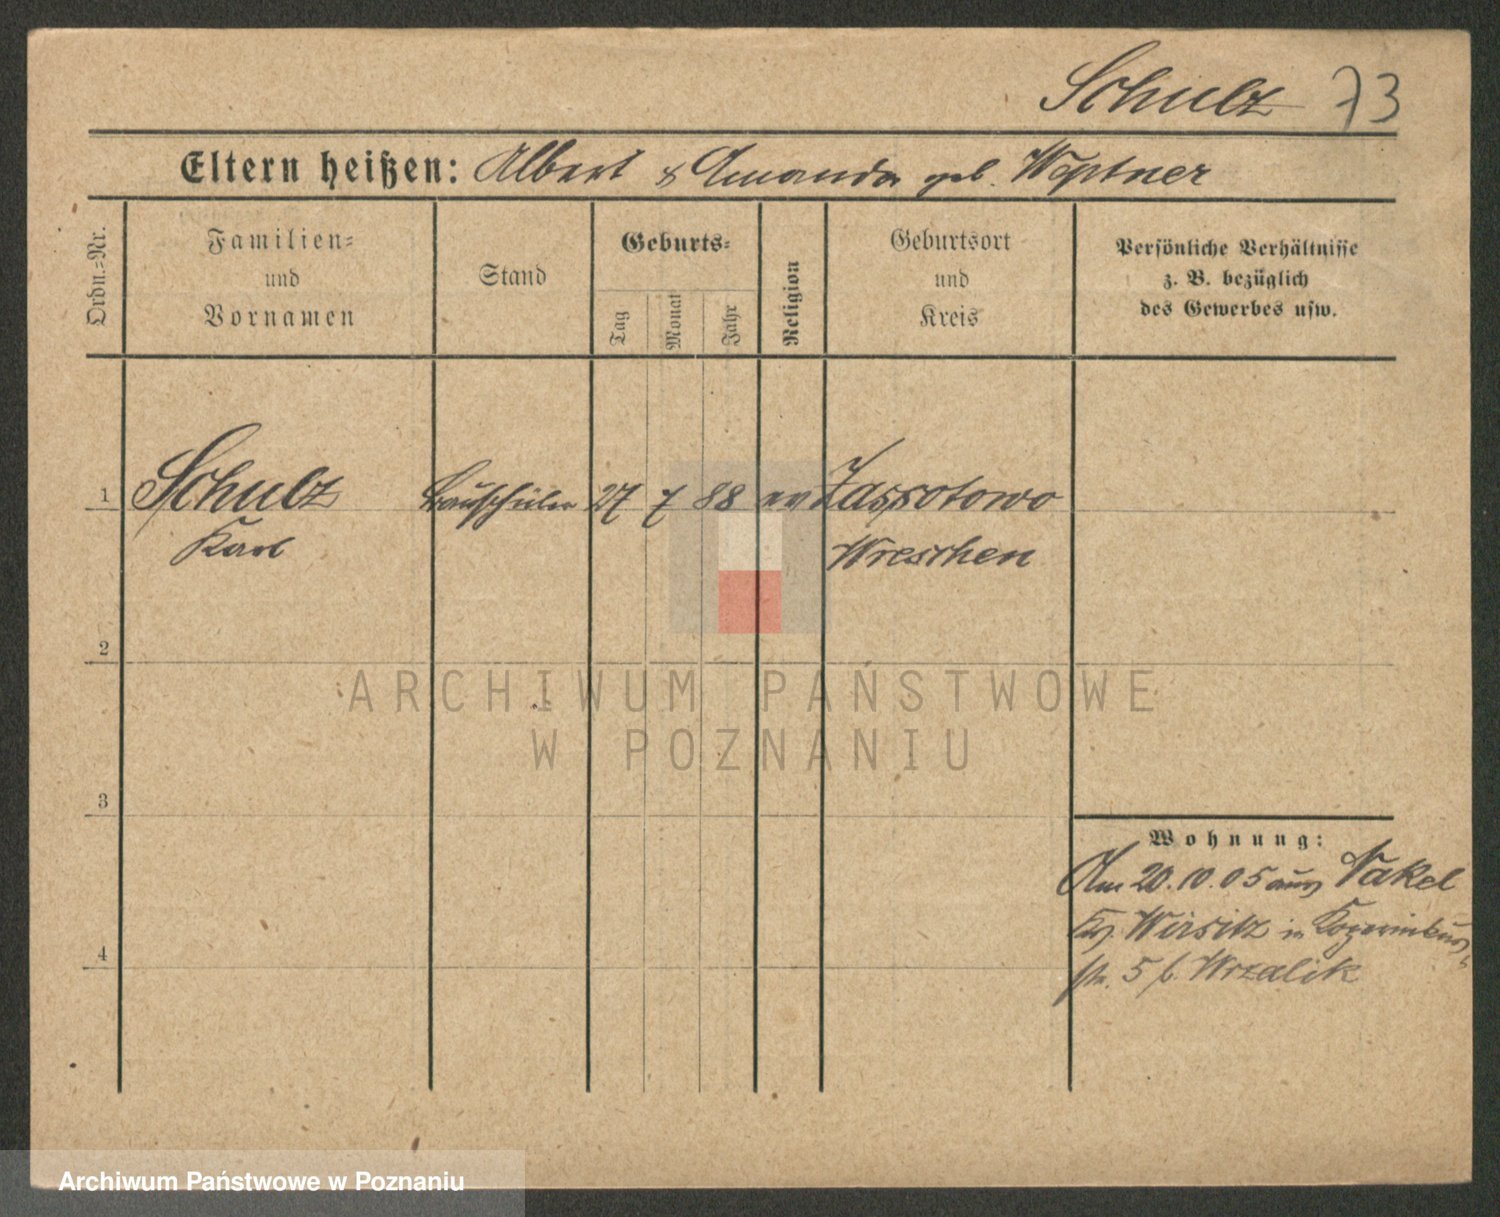 Schulz 73
Eltern heißen: Albert & Amanda geb.
Ordn.=Nr.
Familien=
und
Vornamen
Stand
Geburts=
Tag
Monat
Jahr
Religion
Geburtsort
und
Kreis
Persönliche Verhältnisse
z. B. bezüglich
des Gewerbes usw.
1 Schulz Bauschüler 27 7 88 ev Zassotowo
Karl Wreschen
2
3
4
Wohnung:
Am 20.10.05 aus Nakel
Kr. Wirsitz in
str. 5 b. Wrzalik
ARCHIWUM PAŃSTWOWE
W POZNANIU
Archiwum Państwowe w Poznaniu